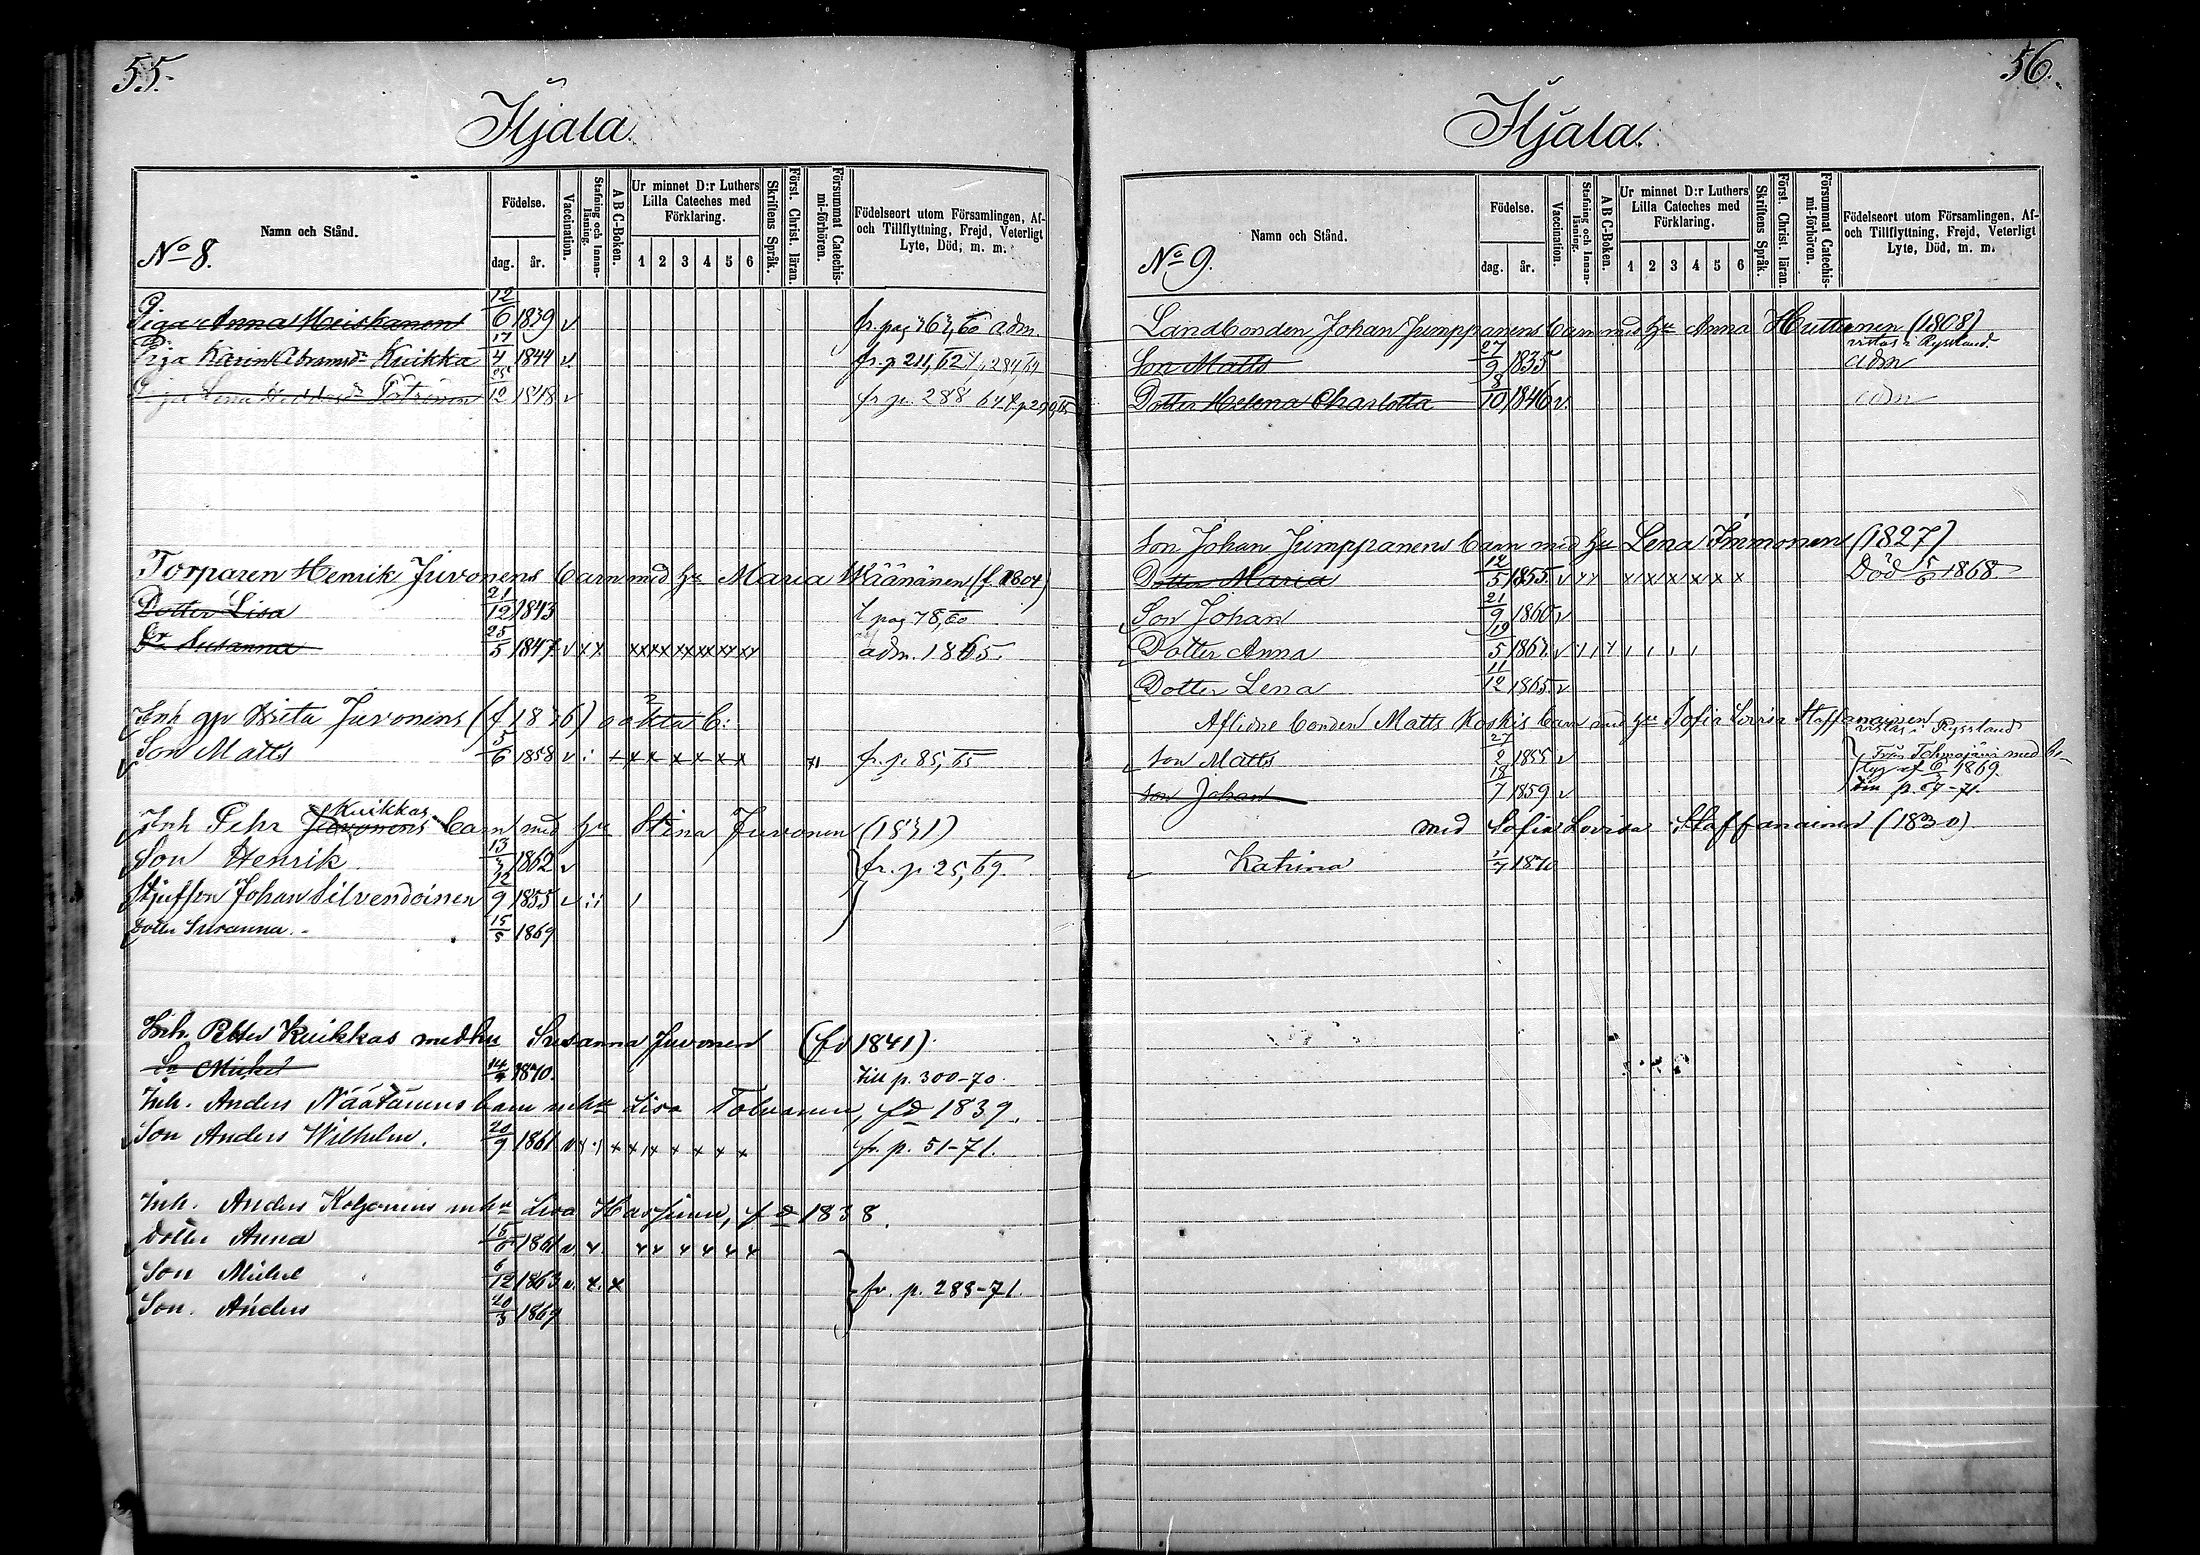 55.
Hjala.
No 8.
Namn och Stånd.
Födelse.
dag. år.
Vaccination.
Stafning och Innan-läsning.
A B C-Boken.
Ur minnet D:r Luthers
Lilla Cateches med
Förklaring.
1 2 3 4 5 6
Skriftens Språk.
Först. Christ. läran.
Försummat Catechis-mi-förhören.
Födelseort utom Församlingen, Af-
och Tillflyttning, Frejd, Veterligt
Lyte, Död, m. m.
Piga Anna Meiskanen 12/6 1839 v fr. pag 767,60 adm.
Piga Karin Abramsdr Kuikka 17/4 1844 v fr. p 211,62
Piga Lena 25/12 1848 v fr. p. 288
Torparen Henrik Juvonens barn med hu Maria Wäänänen (f. 1804)
Dotter Lisa 21/12 1843 t pag 78,60
Dr Susanna 25/5 1847 v x x xxxx xxxxxxx adm. 1865.
Inh gp Brita Juvonens
Son Matts 5/6 1858 v fr. p. 85,65
Inh Pehr Juvonens Kuikkas barn med hu Stina Juvonen
Son Henrik 13/3 1862 v fr. p. 25,69
Stjufson Johan Silvendoinen 22/9 1855 v
Dotter Susanna. 15/5 1869
Inh. Petter Kuikkas med hu Susanna Juvonen (fd 1841)
Sn Mickel 14/9 1870. till p. 300-70.
Inh. Anders Näätänens barn m hu Lisa Tolvanen, fd 1839.
Son Anders Wilhelm. 20/9 1861 fr. p. 51-71.
Inh. Anders m hu Lisa fd 1838.
Dotter Anna 1861
Son Mickel 6/12 1863 v. x. x fr. p. 288-71.
Son. Anders 20/3 1869
56.
Hjala.
No 9.
Namn och Stånd.
Födelse.
dag. år.
Vaccination.
Stafning och Innan-läsning.
A B C-Boken.
Ur minnet D:r Luthers
Lilla Cateches med
Förklaring.
1 2 3 4 5 6
Skriftens Språk.
Först. Christ. läran.
Försummat Catechis-mi-förhören.
Födelseort utom Församlingen, Af-
och Tillflyttning, Frejd, Veterligt
Lyte, Död, m. m.
Landbonden Johan Jumppanens barn med hu Anna Huttunen (1808)
vistas i Ryssland
Son Matts 27/9 1835 adm
Dotter Helena Charlotta 8/10 1846 v. adm
Son Johan Jumppanens barn med hu Lena Immonen (1827)
Dotter Maria 12/5 1855. v x x x x x x x x Död 5/6 1868
Son Johan 21/9 1860 v
Dotter Anna 19/5 v
Dotter Lena 11/12 1865. v
Aflidne bonden Matts Koskis barn med hu Sofia Lovisa Staffanainen
vistas i Ryssland
Son Matts 27/2 1855 v Från Tohmajärvi med be-
tyg af 6/3 1869.
Son Johan 18/7 1859 v
med Sofia Lovisa Staffanainen (1830)
Katrina 1/7 1870